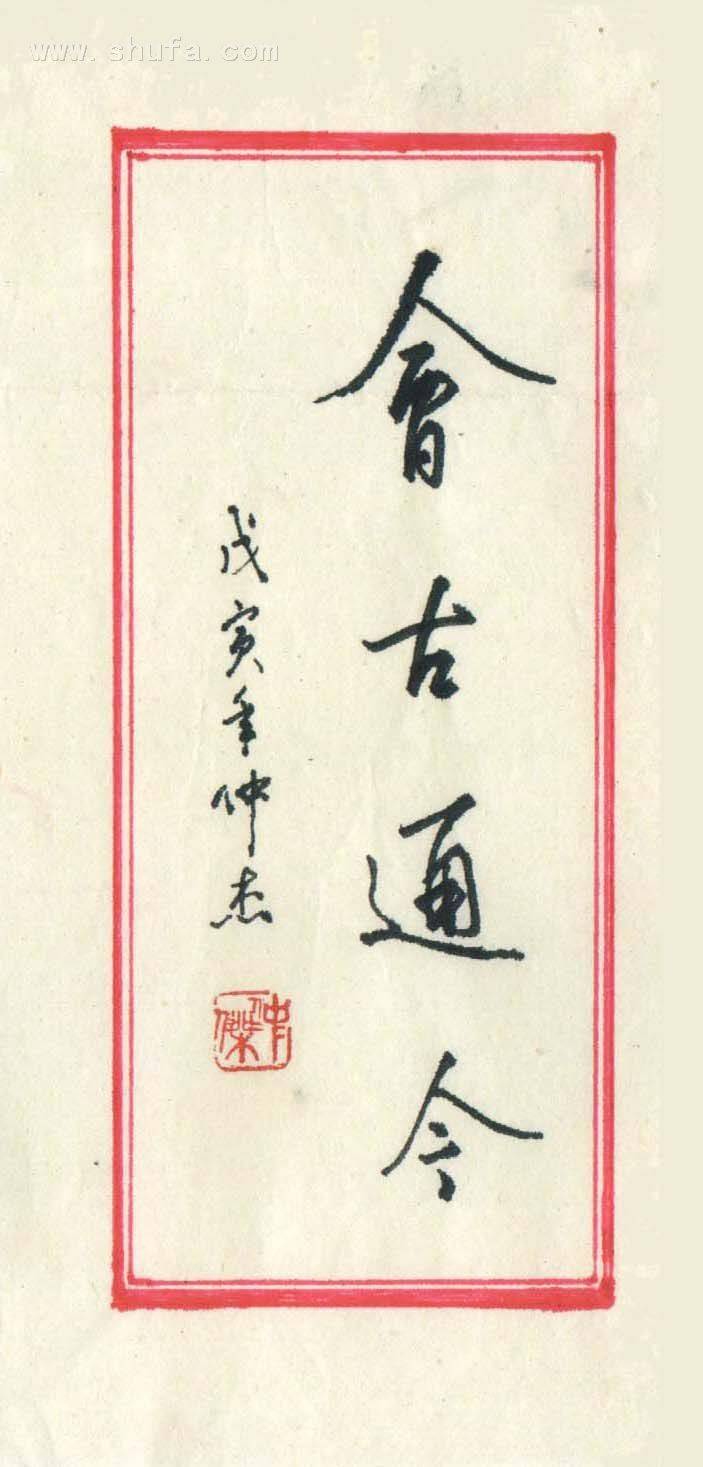 www.shufa.com
會古通今
戊寅年仲杰
仲傑